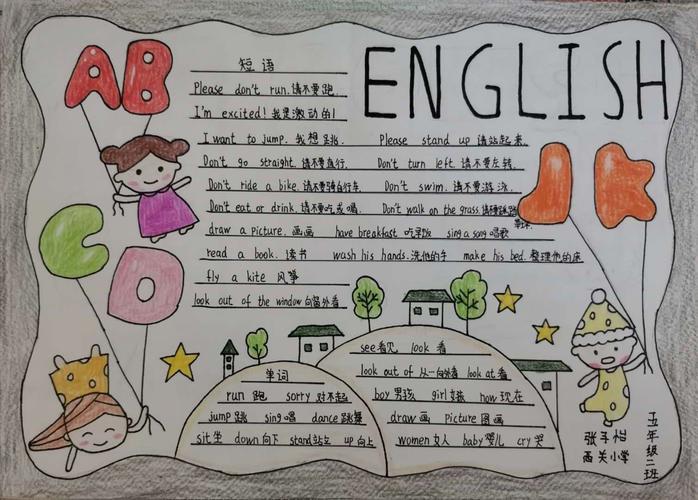 AB
ENGLISH
短语
Please don't run.请不要跑.
I'm excited! 我是激动的!
I want to jump. 我想跳. Please stand up 请站起来.
Don't go straight.请不要直行. Don't turn left.请不要左转.
Don't ride a bike.请不要骑自行车. Don't swim.请不要游泳.
Don't eat or drink.请不要吃或喝. Don't walk on the grass.
draw a picture. 画画 have breakfast 吃早饭 sing a song 唱歌
read a book. 读书 wash his hands.洗他的手 make his bed.整理他的床
fly a kite 风筝
look out of the window 向窗外看
JK
CD
see 看见 look 看
look out of 从—向外看 look at 看
单词
run 跑 sorry 对不起 boy 男孩 girl 女孩 how 现在
jump 跳 sing 唱 dance 跳舞 draw 画 picture 图画
sit 坐 down 向下 stand 站立 up 向上 women 女人 baby 婴儿 cry 哭
张子怡
西关小学
五年级二班